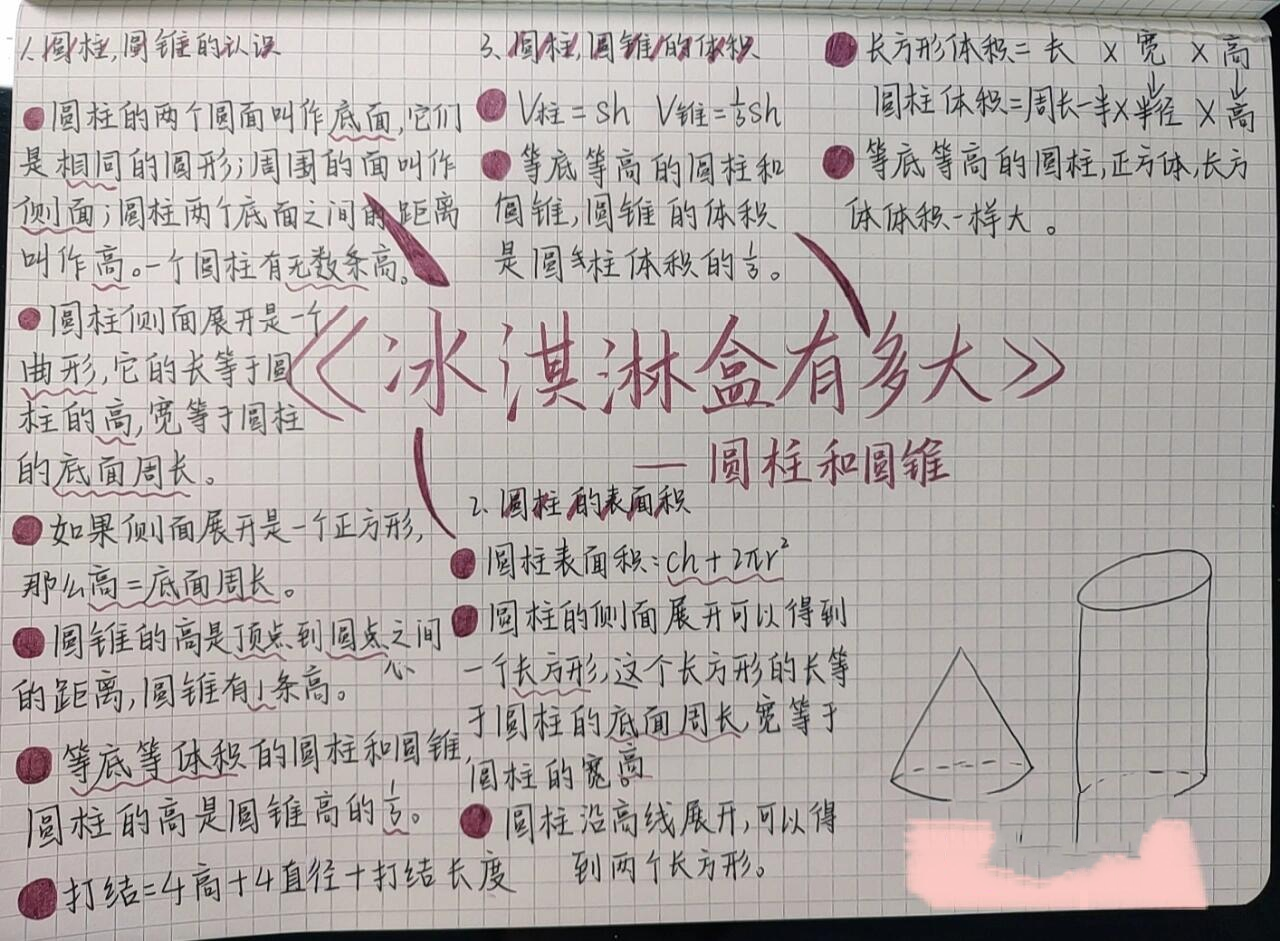 1.圆柱,圆锥的认识
圆柱的两个圆面叫作底面,它们
是相同的圆形;周围的面叫作
侧面;圆柱两个底面之间的距离
叫作高。一个圆柱有无数条高。
圆柱侧面展开是一个
曲形,它的长等于圆
柱的高,宽等于圆柱
的底面周长。
如果侧面展开是一个正方形,
那么高=底面周长。
圆锥的高是顶点到圆点之间
心
的距离,圆锥有1条高。
等底等体积的圆柱和圆锥,
圆柱的高是圆锥高的1/3。
打结=4高+4直径+打结长度
3.圆柱,圆锥的体积
V柱=Sh V锥=1/3Sh
等底等高的圆柱和
圆锥,圆锥的体积
是圆柱体积的1/3。
长方形体积=长×宽×高
↓ ↓
圆柱体积=周长一半×半径×高
等底等高的圆柱,正方体,长方
体体积一样大。
《冰淇淋盒有多大》
— 圆柱和圆锥
2.圆柱的表面积
圆柱表面积:ch+2πr²
圆柱的侧面展开可以得到
一个长方形,这个长方形的长等
于圆柱的底面周长,宽等于
圆柱的宽高。
圆柱沿高线展开,可以得
到两个长方形。